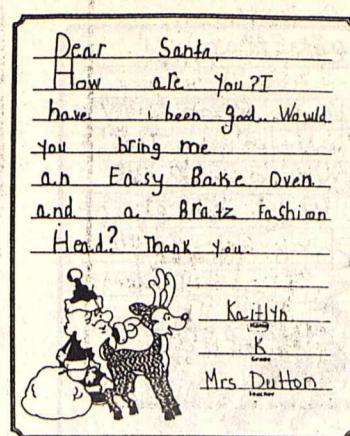 Dear Santa.
How are you?I
have been good. Would
you bring me
an Easy Bake Oven
and a Bratz Fashion
Head? Thank you.
Kaitlyn
Name
K
Grade
Mrs Dutton
teacher